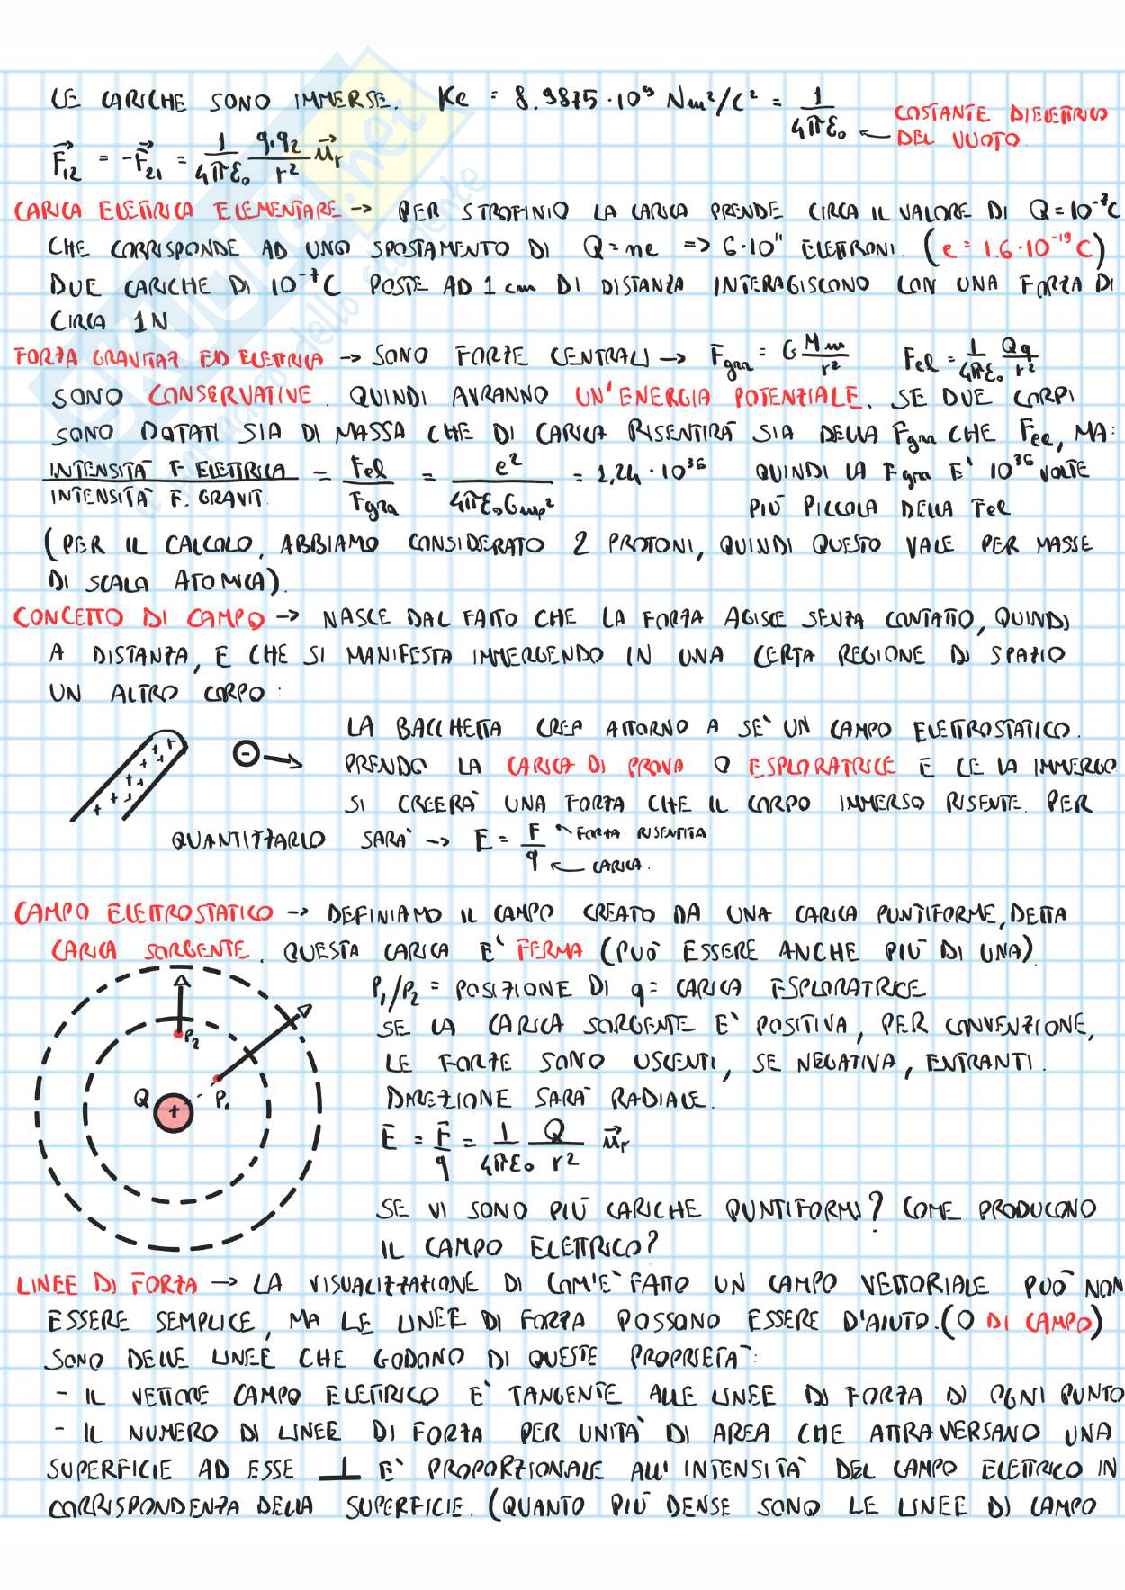 LE CARICHE SONO IMMERSE. Ke = 8.9875·10⁹ Nm²/C² = 1/4πε₀ ← COSTANTE DIELETTRICO DEL VUOTO
F⃗₁₂ = -F⃗₂₁ = 1/4πε₀ q₁q₂/r² u⃗r
CARICA ELETTRICA ELEMENTARE → PER STROFINIO LA CARICA PRENDE CIRCA IL VALORE DI Q=10⁻⁷C
CHE CORRISPONDE AD UNO SPOSTAMENTO DI Q=ne => 6·10¹¹ ELETTRONI. (e = 1.6·10⁻¹⁹C)
DUE CARICHE DI 10⁻⁷C POSTE AD 1 cm DI DISTANZA INTERAGISCONO CON UNA FORZA DI
CIRCA 1N
FORZA GRAVITAZ ED ELETTRICA → SONO FORZE CENTRALI → Fgra = G Mm/r² Fel = 1/4πε₀ Qq/r²
SONO CONSERVATIVE. QUINDI AVRANNO UN'ENERGIA POTENZIALE. SE DUE CORPI
SONO DOTATI SIA DI MASSA CHE DI CARICA RISENTIRÀ SIA DELLA Fgra CHE Fel, MA:
INTENSITÀ F. ELETTRICA/INTENSITÀ F. GRAVIT. = Fel/Fgra = e²/4πε₀Gmp² = 1,24·10³⁶ QUINDI LA Fgra È 10³⁶ VOLTE
PIÙ PICCOLA DELLA Fel
(PER IL CALCOLO, ABBIAMO CONSIDERATO 2 PROTONI, QUINDI QUESTO VALE PER MASSE
DI SCALA ATOMICA).
CONCETTO DI CAMPO → NASCE DAL FATTO CHE LA FORZA AGISCE SENZA CONTATTO, QUINDI
A DISTANZA, E CHE SI MANIFESTA IMMERGENDO IN UNA CERTA REGIONE DI SPAZIO
UN ALTRO CORPO:
LA BACCHETTA CREA ATTORNO A SÈ UN CAMPO ELETTROSTATICO.
PRENDO LA CARICA DI PROVA O ESPLORATRICE E CE LA IMMERGO
SI CREERÀ UNA FORZA CHE IL CORPO IMMERSO RISENTE. PER
QUANTIZZARLO SARÀ → E = F/q ← FORZA RISENTITA
← CARICA.
CAMPO ELETTROSTATICO → DEFINIAMO IL CAMPO CREATO DA UNA CARICA PUNTIFORME, DETTA
CARICA SORGENTE. QUESTA CARICA È FERMA (PUÒ ESSERE ANCHE PIÙ DI UNA).
P₁/P₂ = POSIZIONE DI q = CARICA ESPLORATRICE
SE LA CARICA SORGENTE È POSITIVA, PER CONVENZIONE,
LE FORZE SONO USCENTI, SE NEGATIVA, ENTRANTI.
DIREZIONE SARÀ RADIALE.
P₂
Q + P₁
E⃗ = F⃗/q = 1/4πε₀ Q/r² u⃗r
SE VI SONO PIÙ CARICHE PUNTIFORMI? COME PRODUCONO
IL CAMPO ELETTRICO?
LINEE DI FORZA → LA VISUALIZZAZIONE DI COM'È FATTO UN CAMPO VETTORIALE PUÒ NON
ESSERE SEMPLICE, MA LE LINEE DI FORZA POSSONO ESSERE D'AIUTO. (O DI CAMPO)
SONO DELLE LINEE CHE GODONO DI QUESTE PROPRIETÀ:
- IL VETTORE CAMPO ELETTRICO È TANGENTE ALLE LINEE DI FORZA DI OGNI PUNTO
- IL NUMERO DI LINEE DI FORZA PER UNITÀ DI AREA CHE ATTRAVERSANO UNA
SUPERFICIE AD ESSE ⊥ È PROPORZIONALE ALL'INTENSITÀ DEL CAMPO ELETTRICO IN
CORRISPONDENZA DELLA SUPERFICIE. (QUANTO PIÙ DENSE SONO LE LINEE DI CAMPO